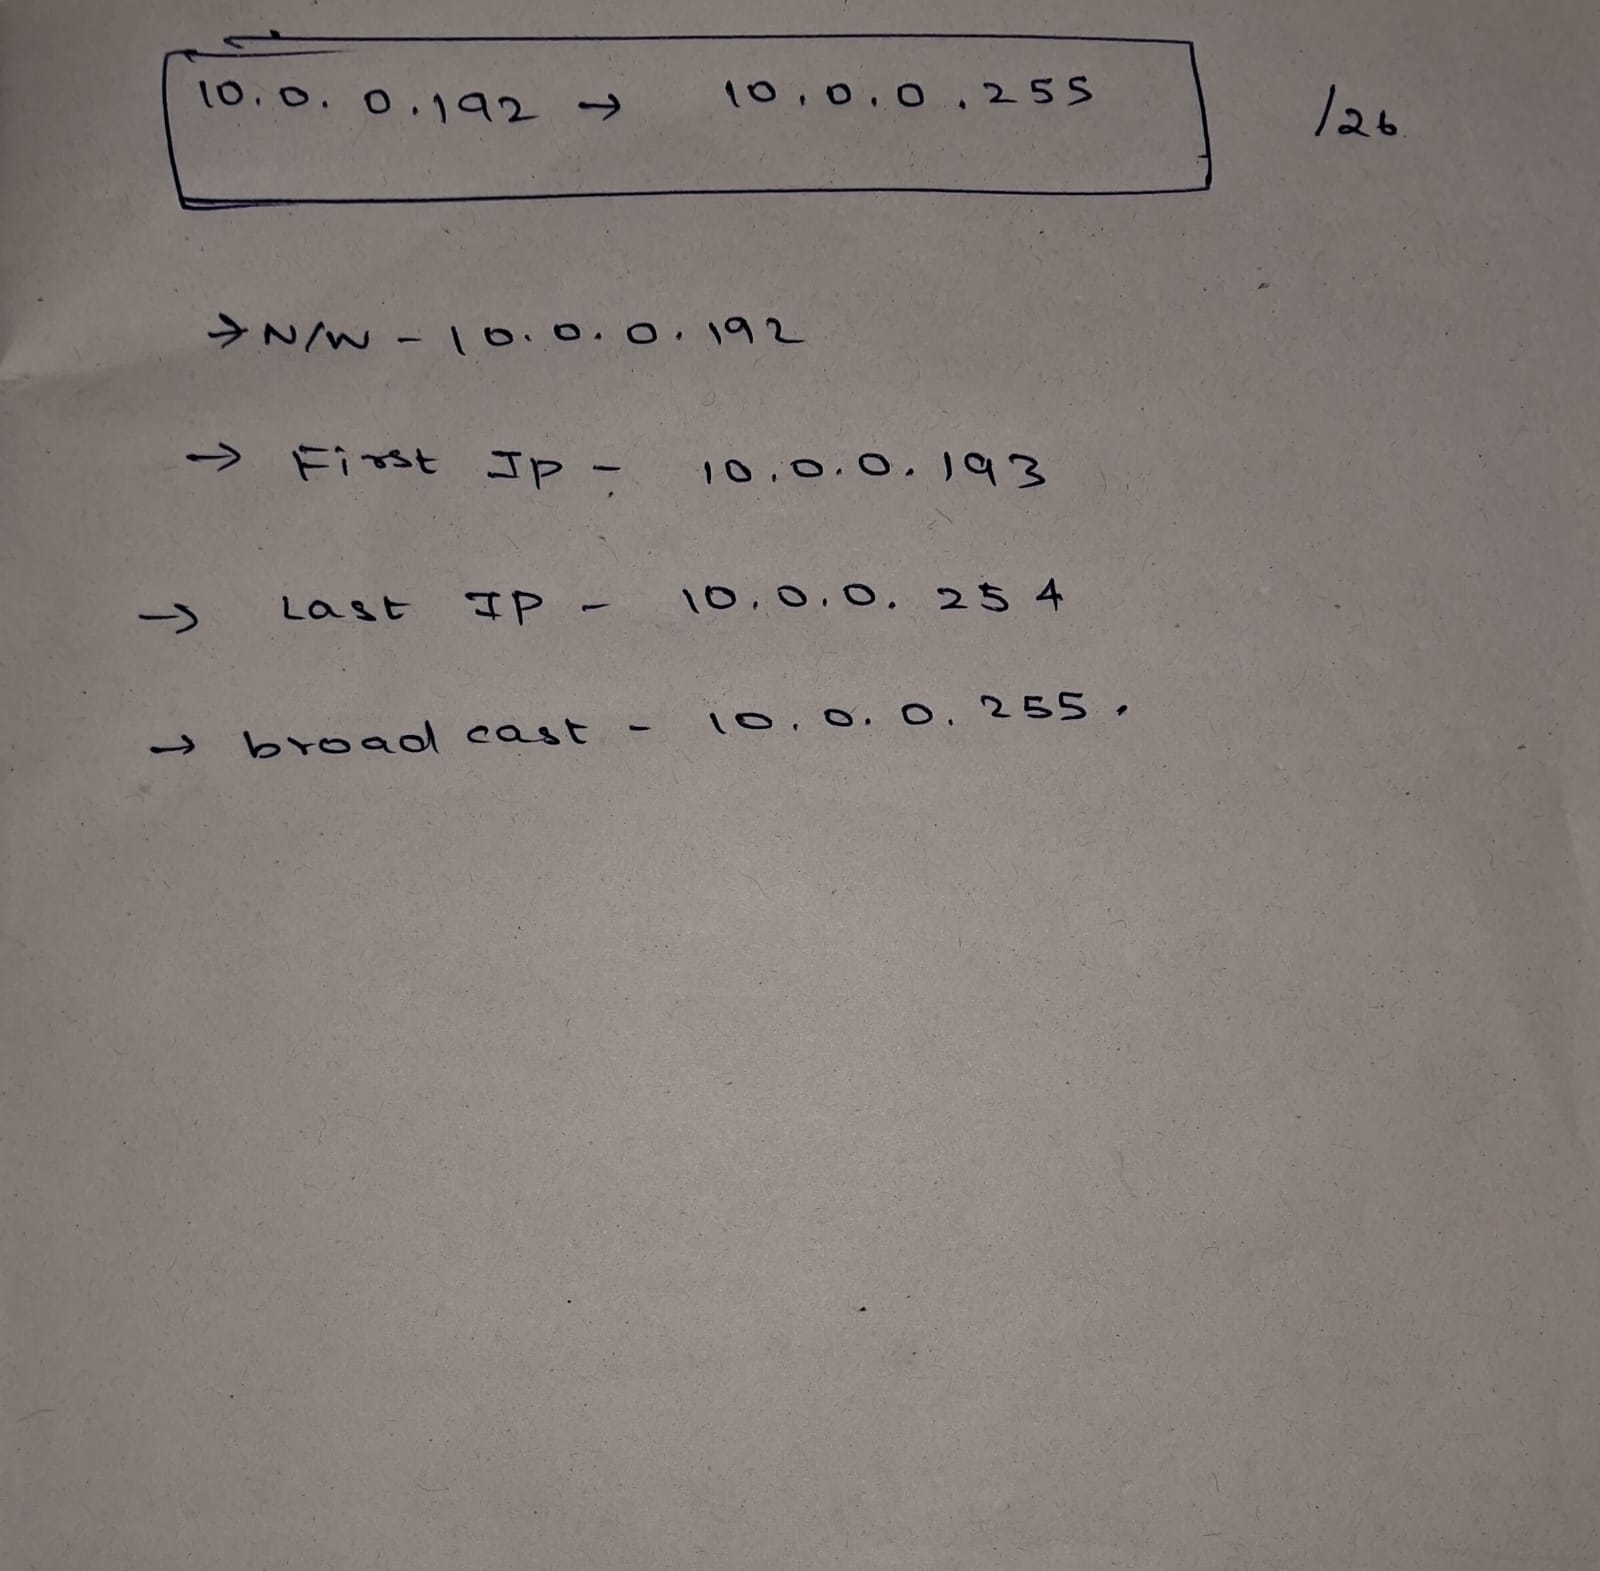 10.0.0.192 → 10.0.0.255 /26
→ N/W - 10.0.0.192
→ First Ip - 10.0.0.193
→ Last IP - 10.0.0.254
→ broad cast - 10.0.0.255.